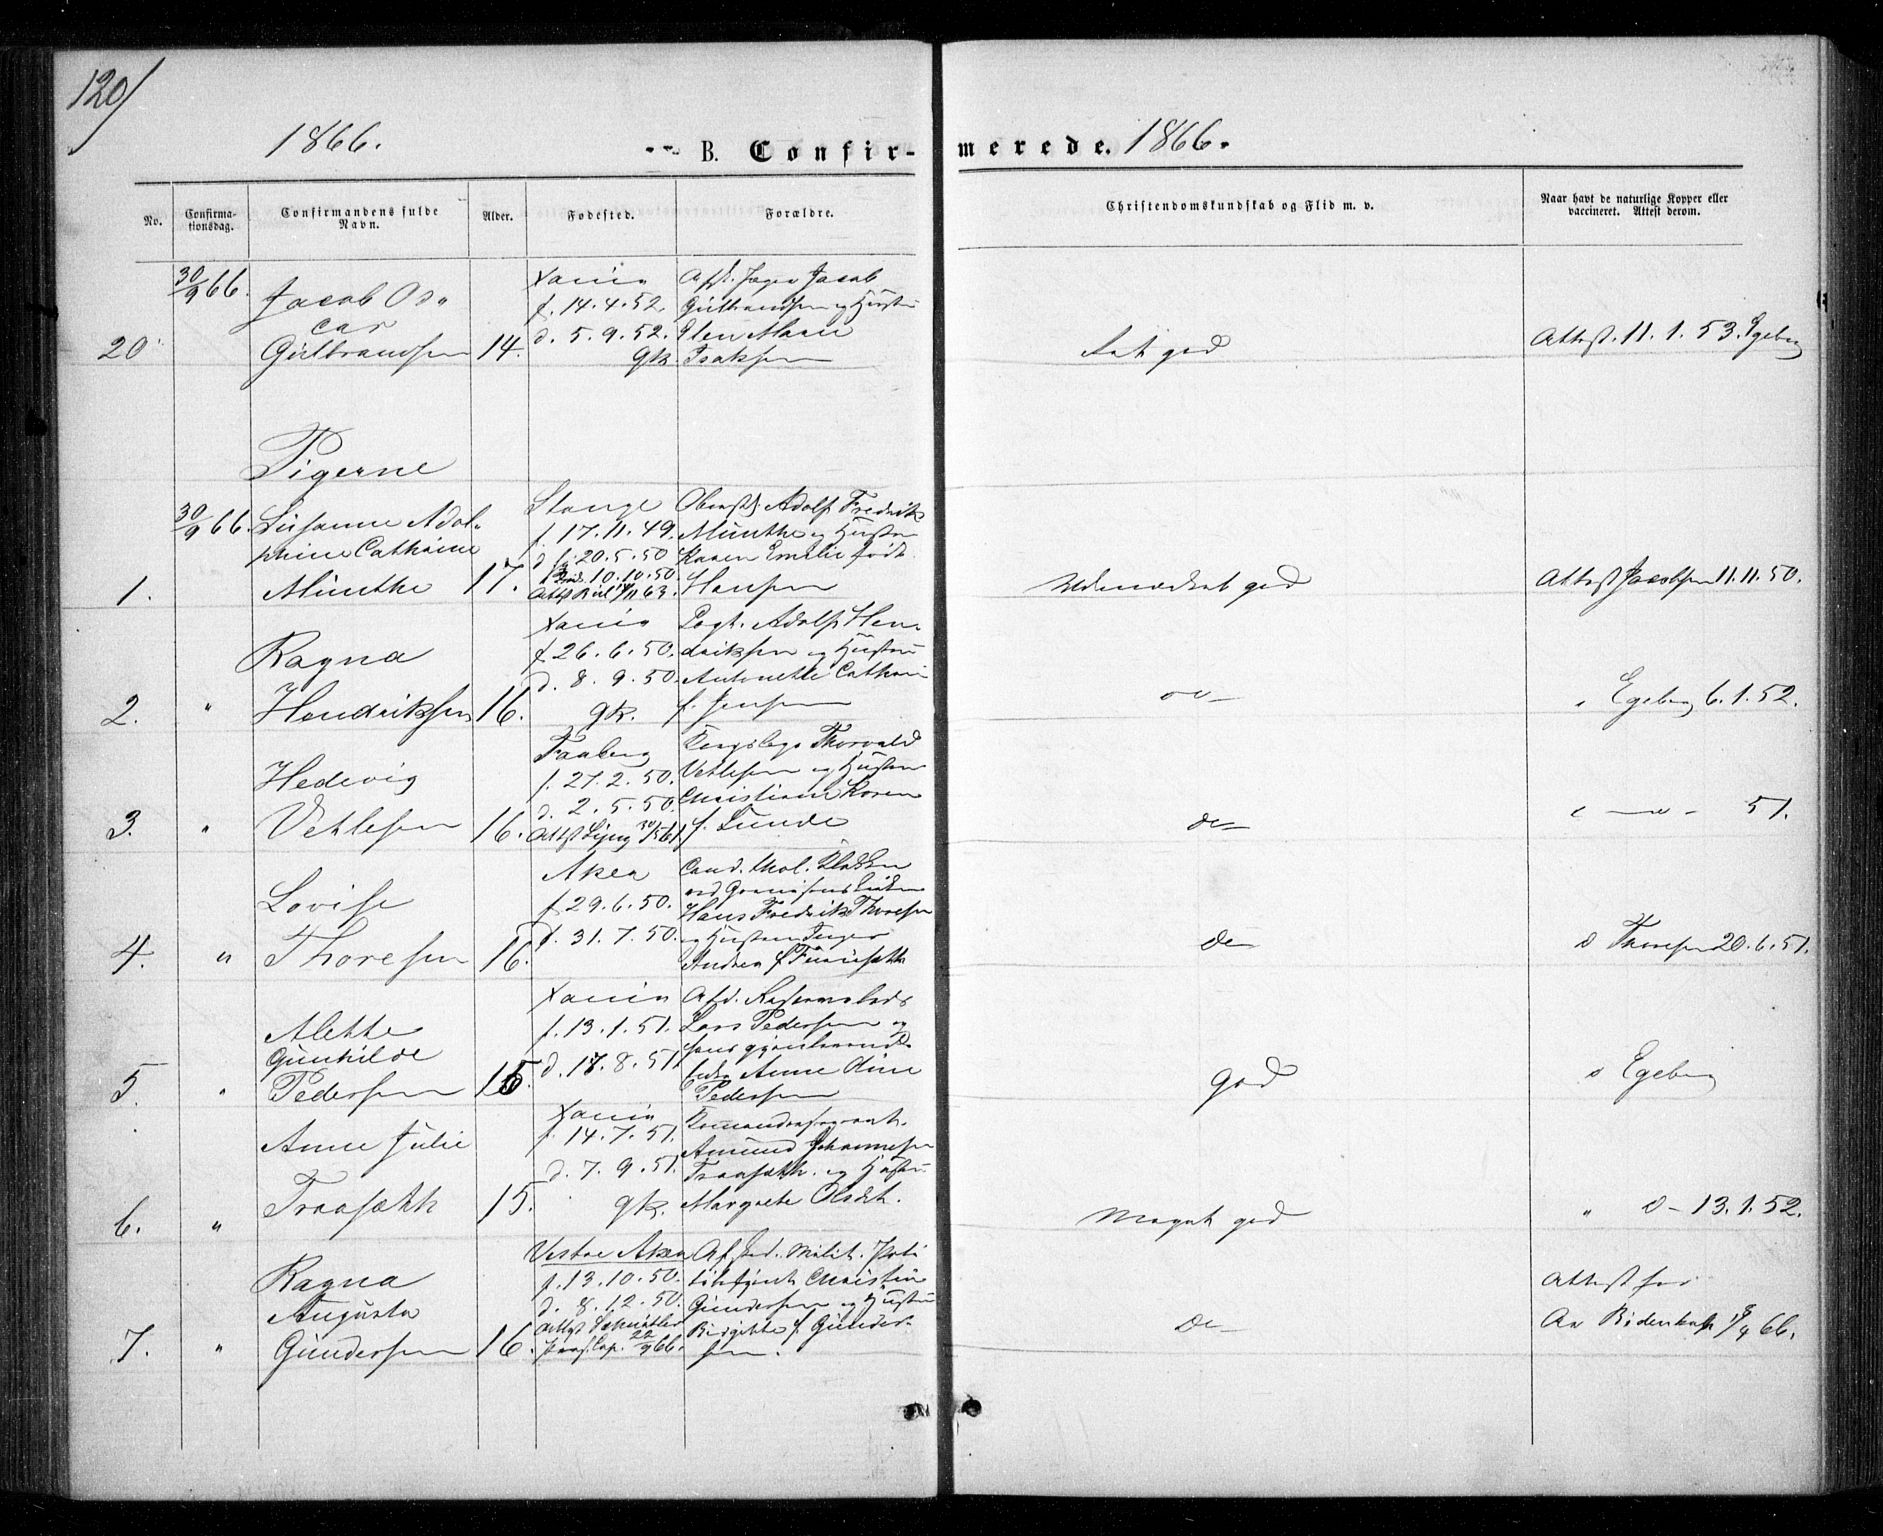 120/
1866.
B. Confir-
merede. 1866.
No.
Confirma-
tionsdag.
Confirmandens fulde
Navn.
Alder.
Fødested.
Forældre.
Christendomskundskab og Flid m. v.
Naar havt de naturlige Kopper eller
vaccineret. Attest derom.
20
30/9 66.
Jacob Os-
car
Gulbrandsen
14.
Xania
f. 14.4.52.
d. 5.9.52.
gk.
Jacob
Gulbrandsen og Hustru
Marie
Isaksen
god
Attest. 11.1.53. Egeberg
Pigerne
1.
30/9 66.
Susanne Adol-
phine Cathrine
Munthe
17.
Stange
f. 17.11.49.
20.5.50
10.10.50.
Adolf Fredrik
Munthe og Hustru
Karen Emilie født
Hansen
Udmærket god
Attest Jacobsen 11.11.50.
2.
"
Ragna
Hendriksen
16.
Xania
f. 26.6.50.
d. 8.9.50.
gk.
Adolf Hen-
driksen og Hustru
Antonette Cathrin
f. Jensen
do
" Egeberg 6.1.52.
3.
"
Hedevig
Vetlesen
16.
Faaberg
f. 27.2.50.
d. 2.5.50.
Attst 30/5 61.
Thorvald
Vetlesen og Hustru
Christiane Karen
f. Lunde
do
51.
4.
"
Lovise
Thoresen
16.
Aker
f. 29.6.50.
d. 31.7.50.
Cand. theol. Klokker
ved Garnisons Kirken
Hans Fredrik Thoresen
og Hustru Inger
Andrea f.
do
d Thoresen 20.6.51.
5.
"
Alette
Gunhilde
Pedersen
15
Xania
f. 13.1.51.
d. 17.8.51
Lars Pedersen og
Anne Oline
Pedersen
god
d Egeberg
6.
"
Anne Julie
Traasæth
15.
Xania
f. 14.7.51.
d. 7.9.51.
gk.
Amund Johannesen
Traasæth. og Hustru
Margrete Olsdt.
Meget god
" d - 13.1.52.
7.
"
Ragna
Augusta
Gundersen
16.
Vestre Aker
f. 13.10.50.
d. 8.12.50.
Attst
22/9 66.
Christian
Gundersen og Hustru
Birgitte f. Gunder-
sen.
do
Attest for
Aar Bidenkap 18/4 66.